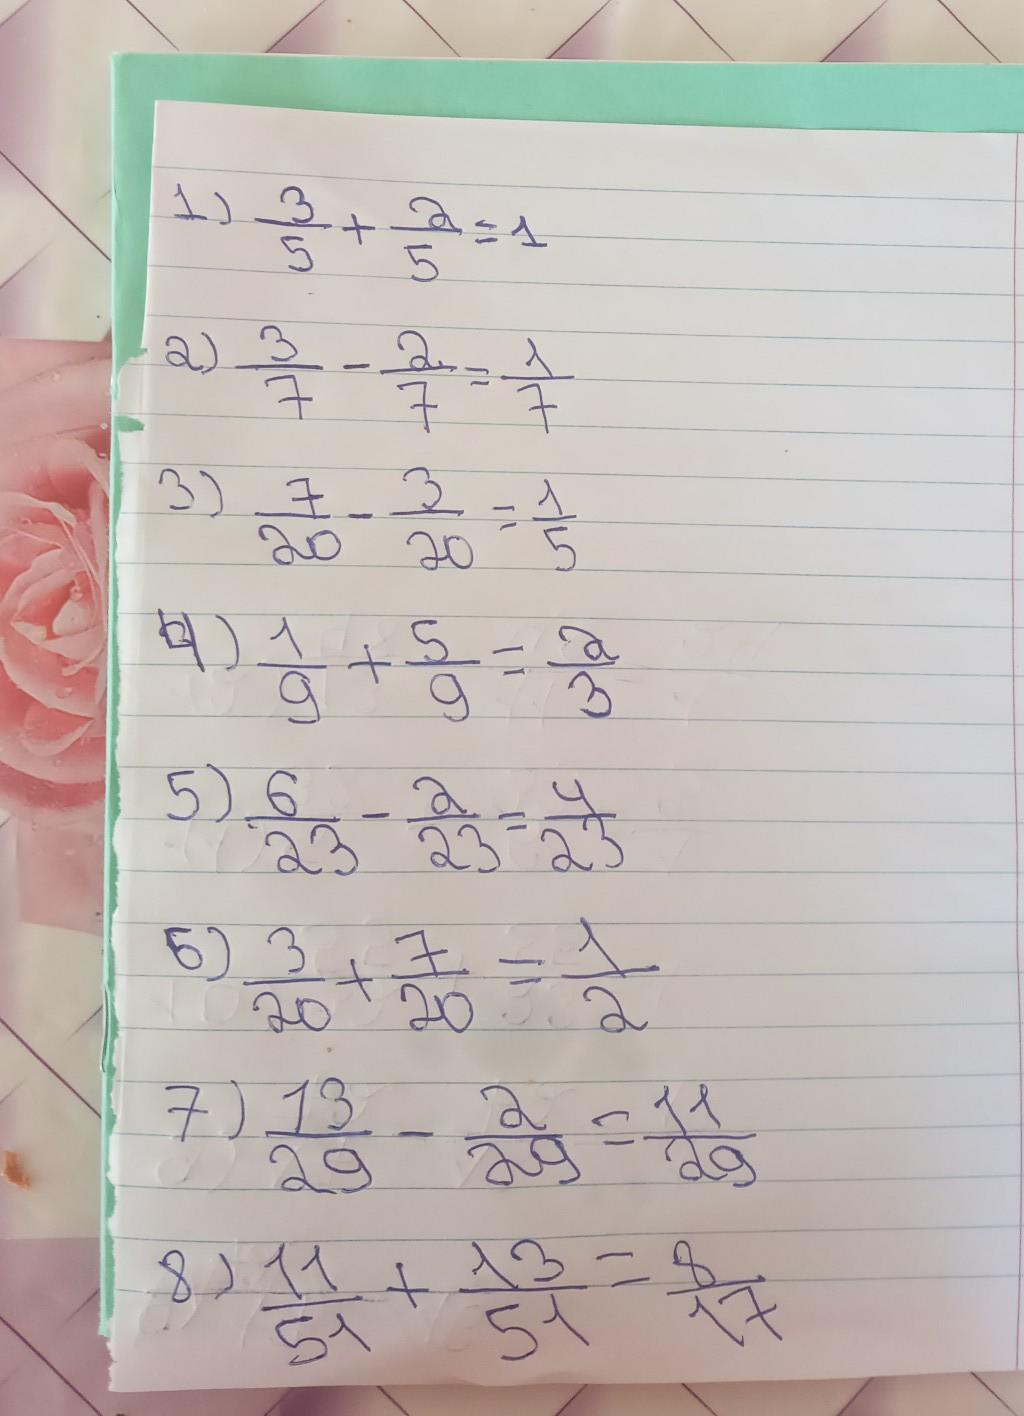 1) 3/5 + 2/5 = 1
2) 3/7 - 2/7 = 1/7
3) 7/20 - 3/20 = 1/5
4) 1/9 + 5/9 = 2/3
5) 6/23 - 2/23 = 4/23
6) 3/20 + 7/20 = 1/2
7) 13/29 - 2/29 = 11/29
8) 11/51 + 13/51 = 8/17